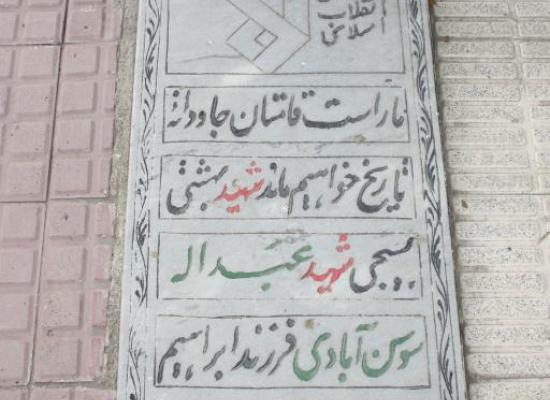 انقلاب
اسلامی
ما راست قامتان جاودانه
تاریخ خواهیم ماند شهید بهشتی
بسیجی شهید عبداله
سوسن آبادی فرزند ابراهیم